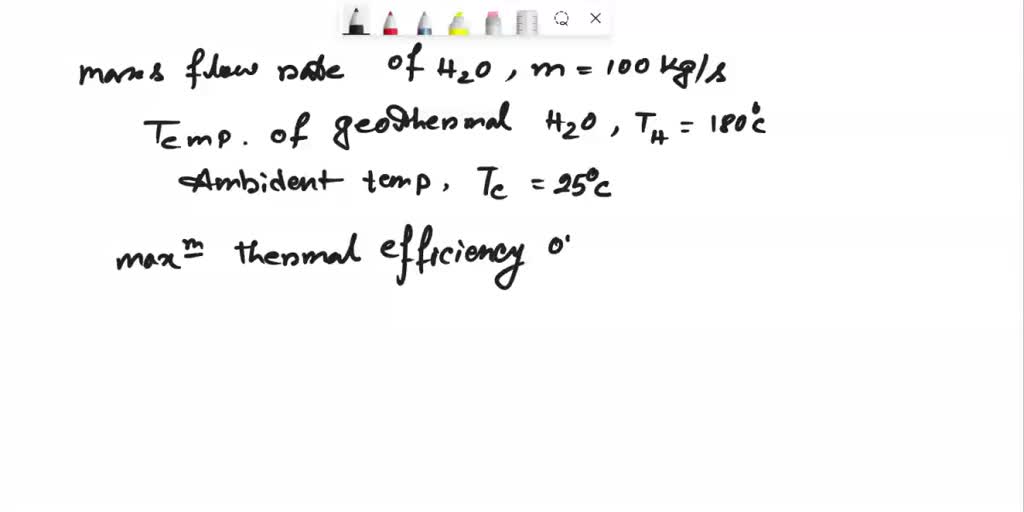 mass flow rate of H₂O, m = 100 kg/s
Temp. of geothermal H₂O, T_H = 180°C
Ambident temp, T_C = 25°C
max^m thermal efficiency o